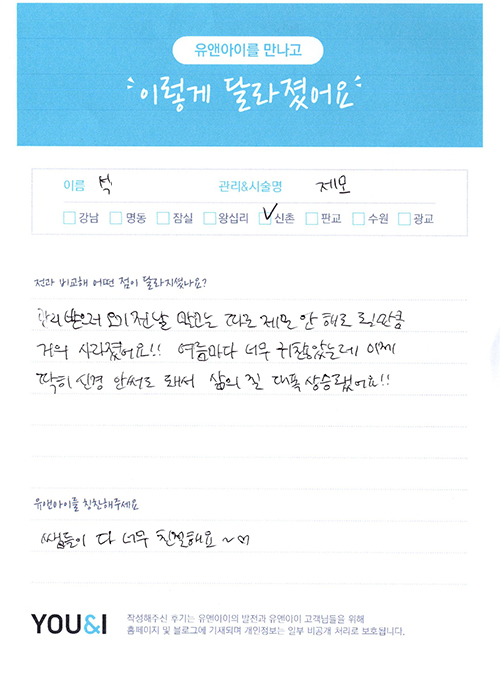 유앤아이를 만나고
이렇게 달라졌어요
이름 석 관리&시술명 제모
강남 명동 잠실 왕십리 신촌 판교 수원 광교
전과 비교해 어떤 점이 달라지셨나요?
받으러 오기 전날 말고는 따로 제모 안 해도 될만큼
거의 사라졌어요!! 여름마다 너무 귀찮았는데 이제
딱히 신경 안써도 돼서 삶의 질 대폭 상승됐어요!!
유앤아이를 칭찬해주세요
쌤들이 다 너무 친절해요 ~♡
YOU&I
작성해주신 후기는 유앤아이의 발전과 유앤아이 고객님들을 위해
홈페이지 및 블로그에 기재되며 개인정보는 일부 비공개 처리로 보호됩니다.